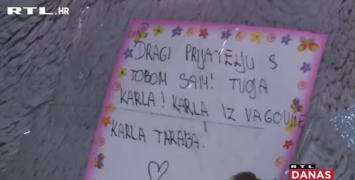 RTL.HR
DRAGI PRIJATELJU S
TOBOM SAM! TVOJA
KARLA! KARLA IZ VAGOUNE
KARLA TARABA.
RTL
DANAS